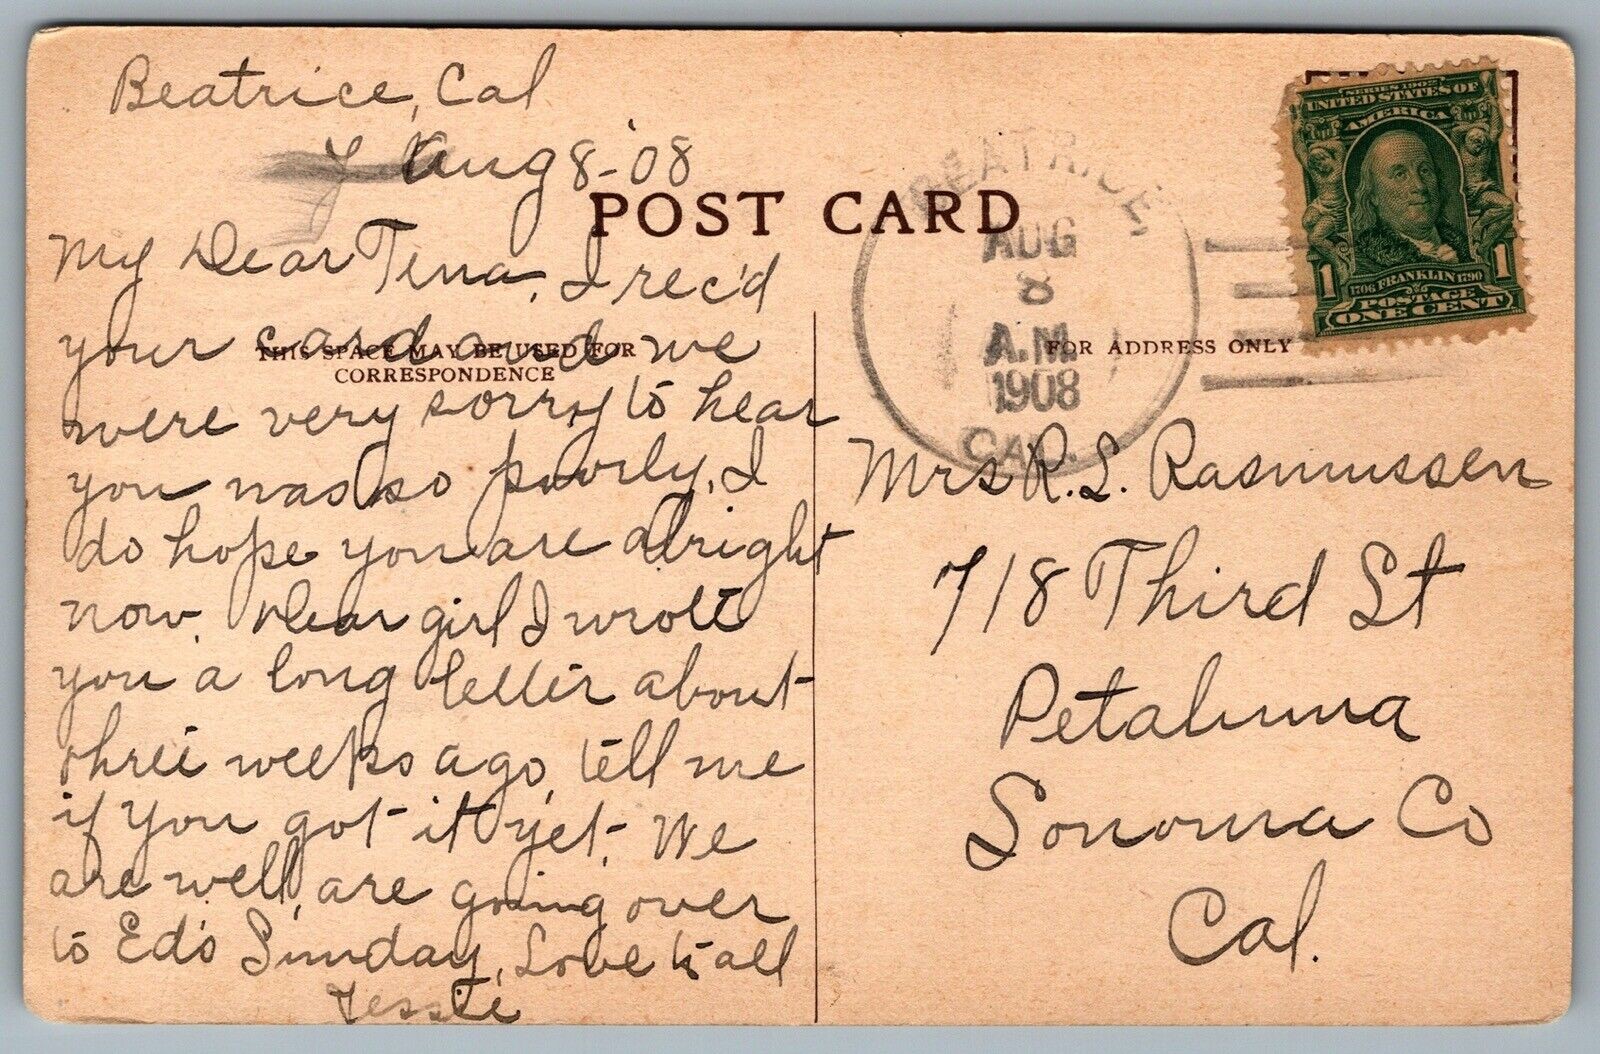 Beatrice, Cal
Aug 8-'08
POST CARD
My Dear Tena, I rec'd
your card and we
THIS SPACE MAY BE USED FOR
CORRESPONDENCE
were very sorry to hear
you was so poorly, I
do hope you are alright
now. Dear girl I wrote
you a long letter about
three weeks ago, tell me
if you got it yet. We
are well, are going over
to Ed's Sunday, Love to all
Jessie
BEATRICE,
AUG
8
A.M.
1908
CAL.
SERIES 1902
UNITED STATES OF
AMERICA
1706 FRANKLIN 1790
1 POSTAGE 1
ONE CENT
FOR ADDRESS ONLY
Mrs R. L. Rasmussen
718 Third St
Petaluma
Sonoma Co
Cal.